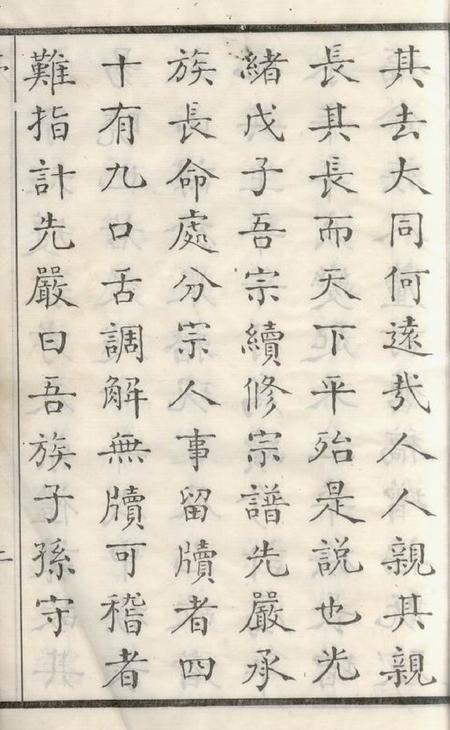 其去大同何遠哉人人親其親
長其長而天下平殆是說也光
緒戊子吾宗續修宗譜先嚴承
族長命處分宗人事留牘者四
十有九口舌調解無牘可稽者
難指計先嚴曰吾族子孫守